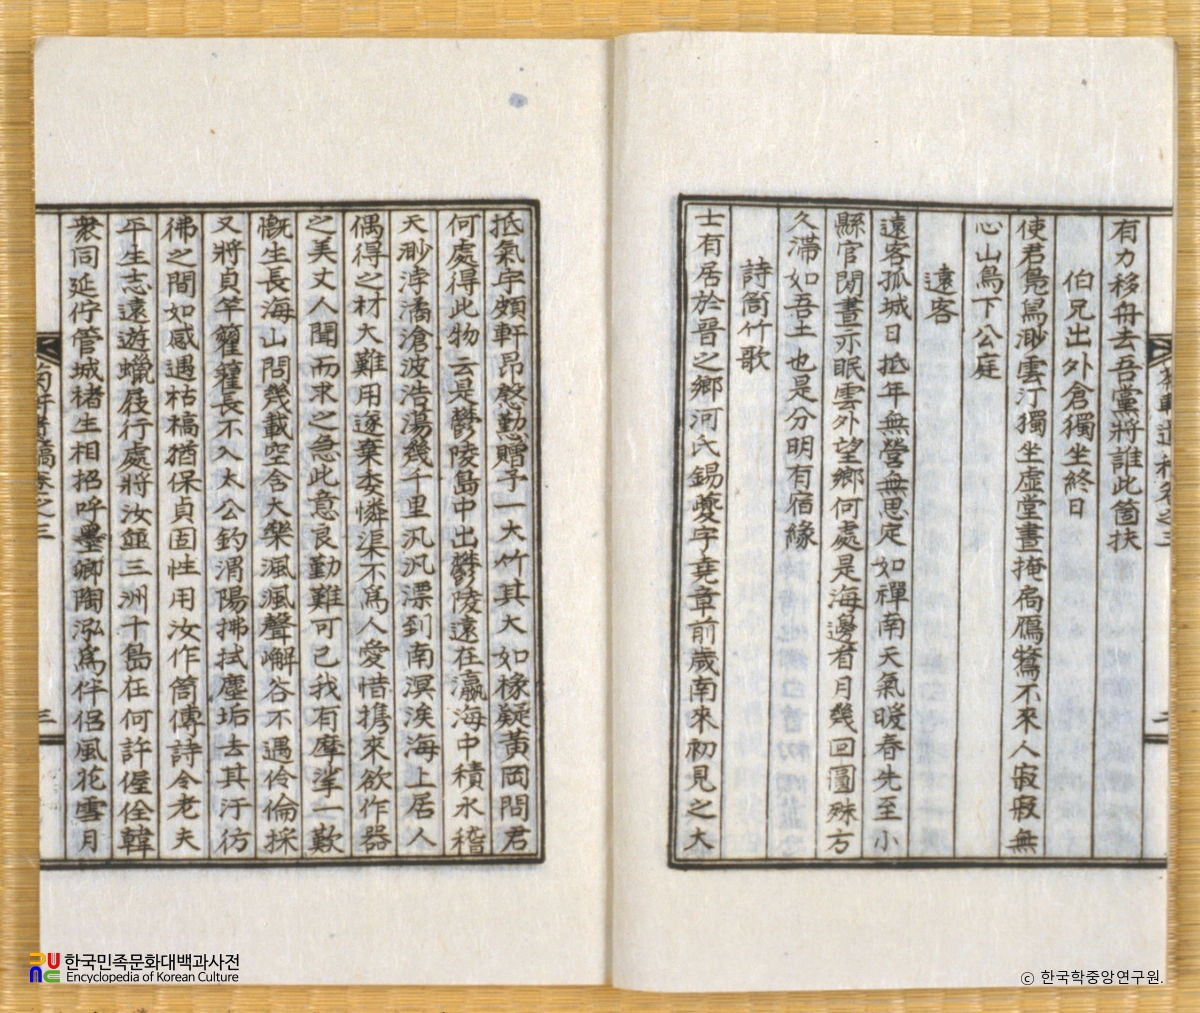 有力移舟去吾黨將誰此箇扶
伯兄出外倉獨坐終日
使君鳧舃渺雲汀獨坐虛堂晝掩扃鴈鶩不來人寂寂無
心山鳥下公庭
遠客
遠客孤城日抵年無營無思定如禪南天氣暖春先至小
縣官閒晝亦眠雲外望鄕何處是海邊看月幾回圓殊方
久滯如吾土也是分明有宿緣
詩筒竹歌
士有居於晉之鄕河氏錫夔字堯章前歲南來初見之大
二
抵氣宇頗軒昂慇懃贈予一大竹其大如椽疑黃岡問君
何處得此物云是鬱陵島中出鬱陵遠在瀛海中積水稽
天渺浡潏滄波浩蕩幾千里汎汎漂到南溟涘海上居人
偶得之材大難用遂棄委憐渠不爲人愛惜携來欲作器
之美丈人聞而求之急此意良勤難可已我有摩挲一歎
慨生長海山問幾載空含大樂渢渢聲嶰谷不遇伶倫採
又將貞竿籊籊長不入太公釣渭陽拂拭塵垢去其汙彷
彿之間如感遇枯槁猶保貞固性用汝作筒傳詩令老夫
平生志遠遊蠟屐行處將汝竝三洲十島在何許偓佺韓
衆同延佇管城楮生相招呼墨卿陶泓爲伴侶風花雪月
稿卷之三
三
한국민족문화대백과사전
Encyclopedia of Korean Culture
ⓒ 한국학중앙연구원.